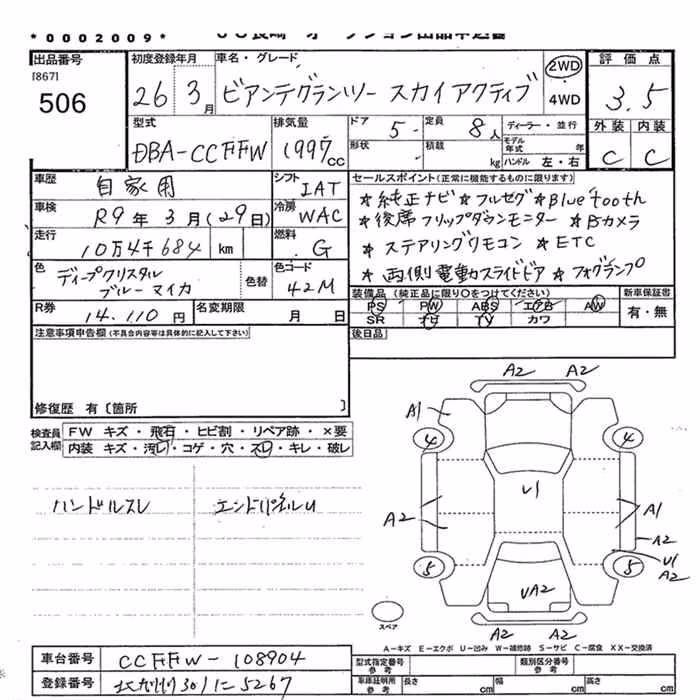 *0002009*
出品番号
[867]
506
初度登録年月
26年 3月
車名・グレード
ビアンテグランツー スカイアクティブ
2WD
4WD
評価点
3.5
外装 内装
C C
型式
DBA-CCFFW
排気量
1997cc
ドア 5
定員 8人
形状
積載 kg
ディーラー・並行
モデル年式 年
ハンドル 左・右
車歴 自家用
シフト IAT
車検 R9年3月(29日)
冷房 WAC
走行 10万4千684 km
燃料 G
色 ディープクリスタルブルーマイカ
色替
色コード 42M
R券 14,110円
名変期限 月 日
セールスポイント(正常に機能するものに限ります)
★純正ナビ ★フルセグ ★Bluetooth
★後席フリップダウンモニター ★Bカメラ
★ステアリングリモコン ★ETC
★両側電動スライドドア ★フォグランプ
装備品(純正品に限り○をつけてください)
新車保証書
PS PW ABS エアB AW
有・無
SR ナビ TV カワ
注意事項申告欄(不具合内容等は具体的に記入して下さい)
後日品
修復歴 有〔箇所 〕
検査員記入欄
FW キズ・飛石・ヒビ割・リペア跡・×要
内装 キズ・汚レ・コゲ・穴・スレ・キレ・破レ
ハンドルスレ
エンドパネルU
A2 A2
A1
4 4
U1
A2
A1
A2
U1
A2
5 5
UA2
A2 A2
スペア
A−キズ E−エクボ U−凹み W−補修跡 S−サビ C−腐食 XX−交換済
車台番号 CCFFW-108904
登録番号
301に5267
型式指定番号 参考
類別区分番号 参考
車体証明所 参考
長さ cm
幅 cm
高さ cm